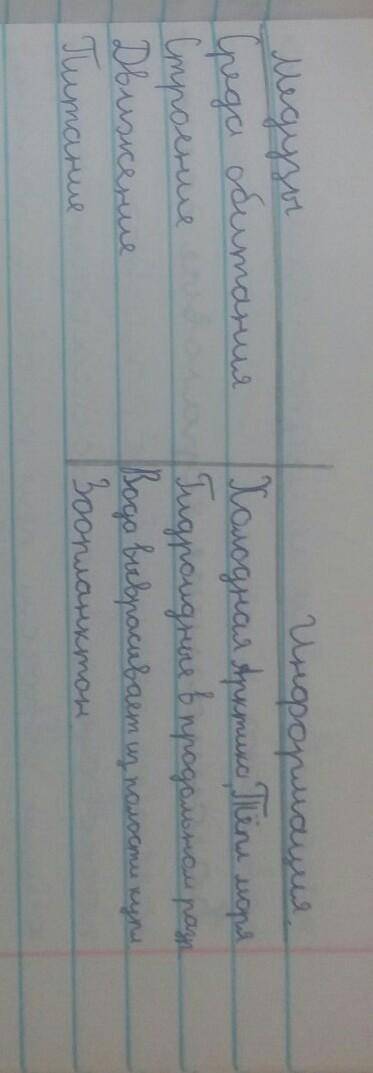 Медузы Информация.
Среда обитания Холодная Арктика, Тёпл моря
Строение Гидроидные в продольном разр
Движение Вода выбрасивает из полости купи
Питание Зоопланктон